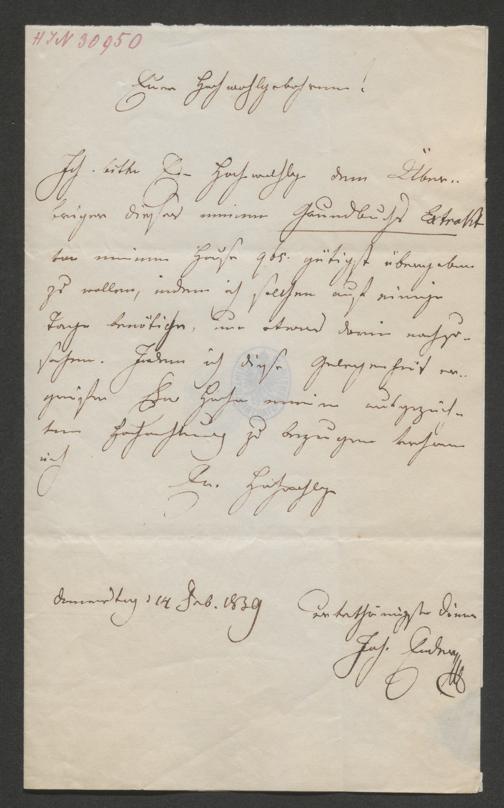 HIN 30950
Euer Hochwohlgebohren!
Ich bitte Eu Hochwohlg dem Über-
bringer dieses meinen Grundbuchs Extrakt
von meinem Hause 905. gütigst übergeben
zu wollen, indem ich selben auf einige
Tage benöthige, um etwas darin nachzu-
sehen. Indem ich diese Gelegenheit er-
greife Ihn meine ausgezeich-
tem Hochachtung zu bezeugen
ich
Eu. Hochwohlg
Donnerstag 14 Feb. 1839
unterthänigster Diener
Joh.